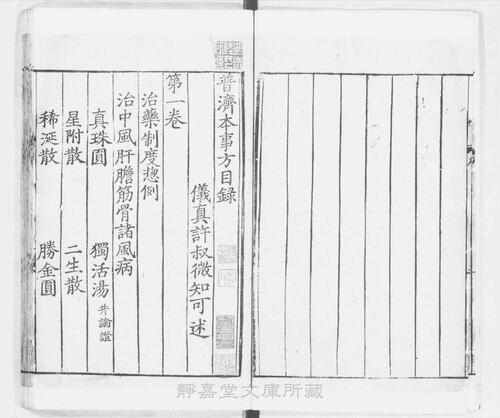 普濟本事方目錄
儀真許叔微知可述
第一卷
治藥制度㧾例
治中風肝膽筋骨諸風病
真珠圓 獨活湯并論證
星附散 二生散
稀涎散 勝金圓
靜嘉堂文庫所藏